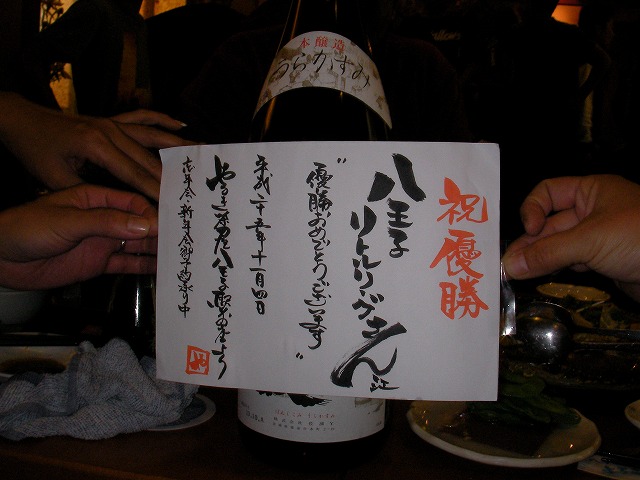 本醸造
うらかすみ
祝優勝
八王子
リトルリーグさん江
"優勝おめでとうございます"
平成二十五年十一月四日
やるき茶屋八王子駅前店より
忘年会・新年会御予約承り中
や